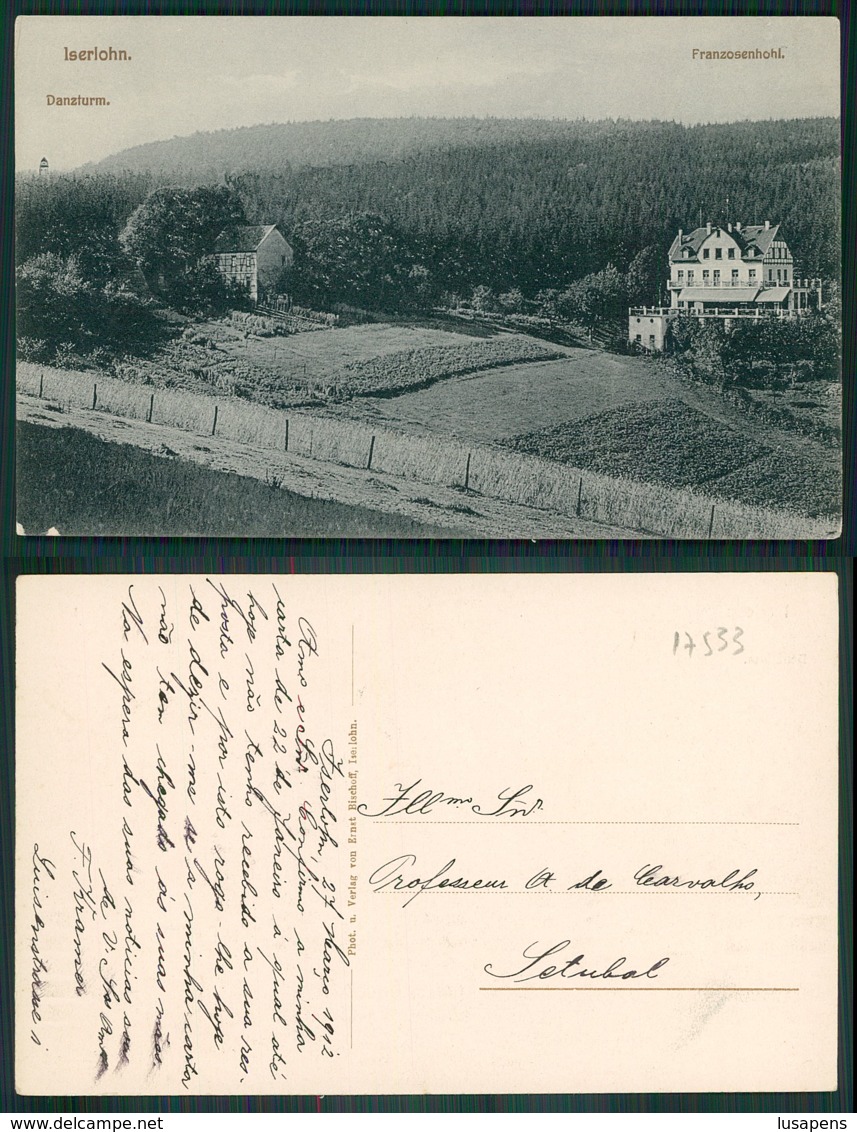 Iserlohn.
Franzosenhohl.
Danzturm.
17533
Iserlohn, 27 Março 1912
Amo e Snr. Confirmo a minha
carta de 22 de Janeiro á qual até
hoje não tenho recebido a sua res-
posta e por isto rogo-lhe hoje
de dezir-me se a minha carta
não tem chegado ás suas mãos
Na espera das suas noticias sou
de V. Sa Amo
F. Krämer
Luisenstrasse 1
Phot. u. Verlag von Ernst Bischoff, Iserlohn.
Illmo Snr.
Professeur A. de Carvalho,
Setubal
lusapens